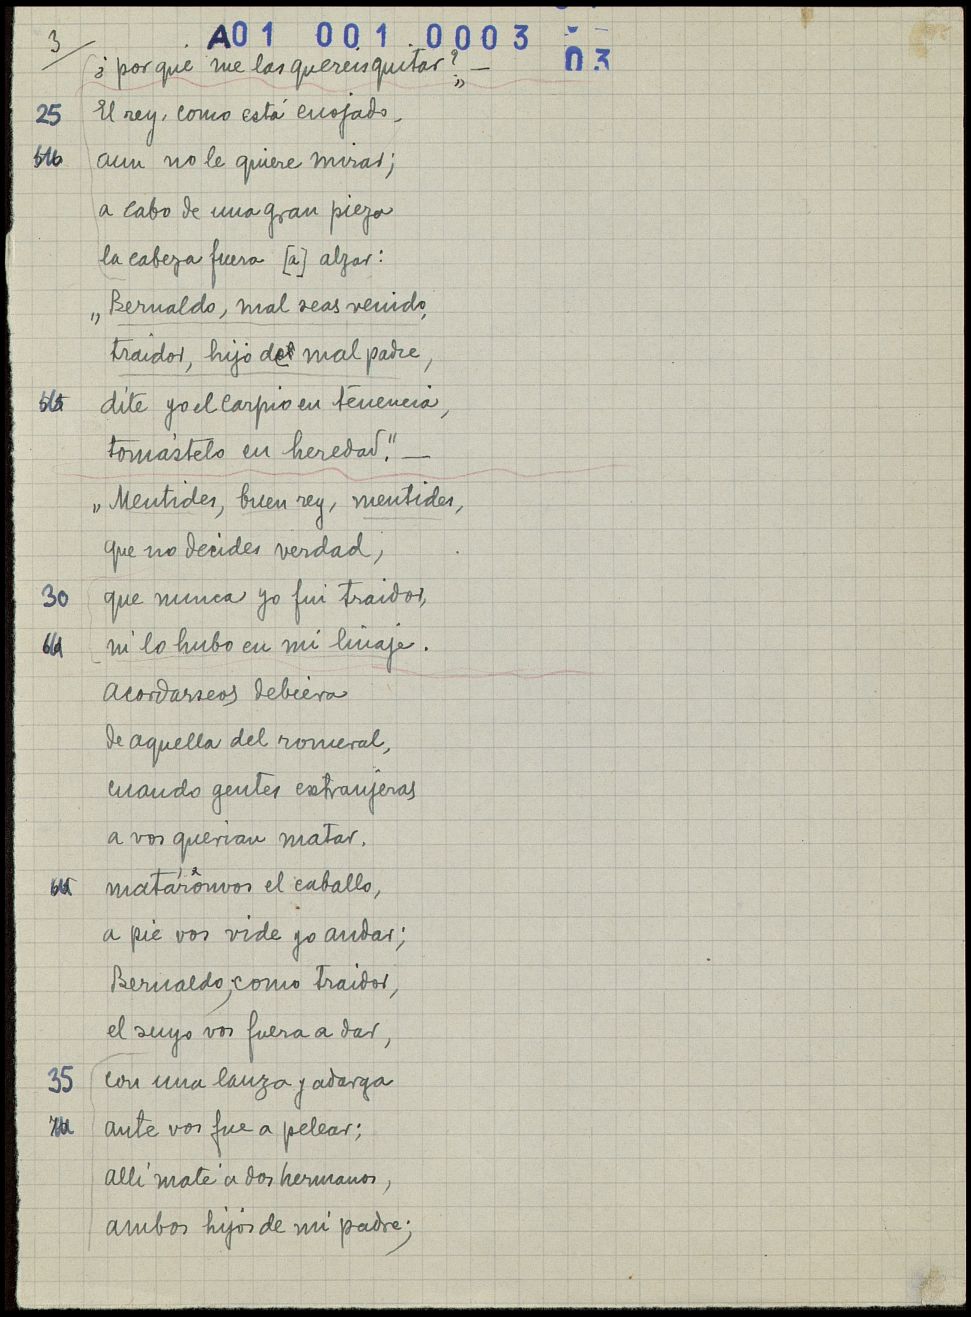 3
A01 001 0003
03
¿ por qué me las quereis quitar? —„
25 El rey, como está enojado
aun no le quiere mirar;
a cabo de una gran pieza
la cabeza fuera [a] alzar:
„Bernaldo, mal seas venido,
traidor, hijo de mal padre,
díte yo el Carpio en tenencia,
tomástelo en heredad." —
„Mentides, buen rey, mentides,
que no decides verdad,
30 que nunca yo fui traidor,
ni lo hubo en mi linaje.
acordarseos debiera
de aquella del romeral,
cuando gentes extranjeras
a vos querian matar.
matáronvos el caballo,
a pie vos vide yo andar;
Bernaldo, como traidor,
el suyo vos fuera a dar,
35 con una lanza y adarga
ante vos fue a pelear;
alli maté a dos hermanos,
ambos hijos de mi padre;